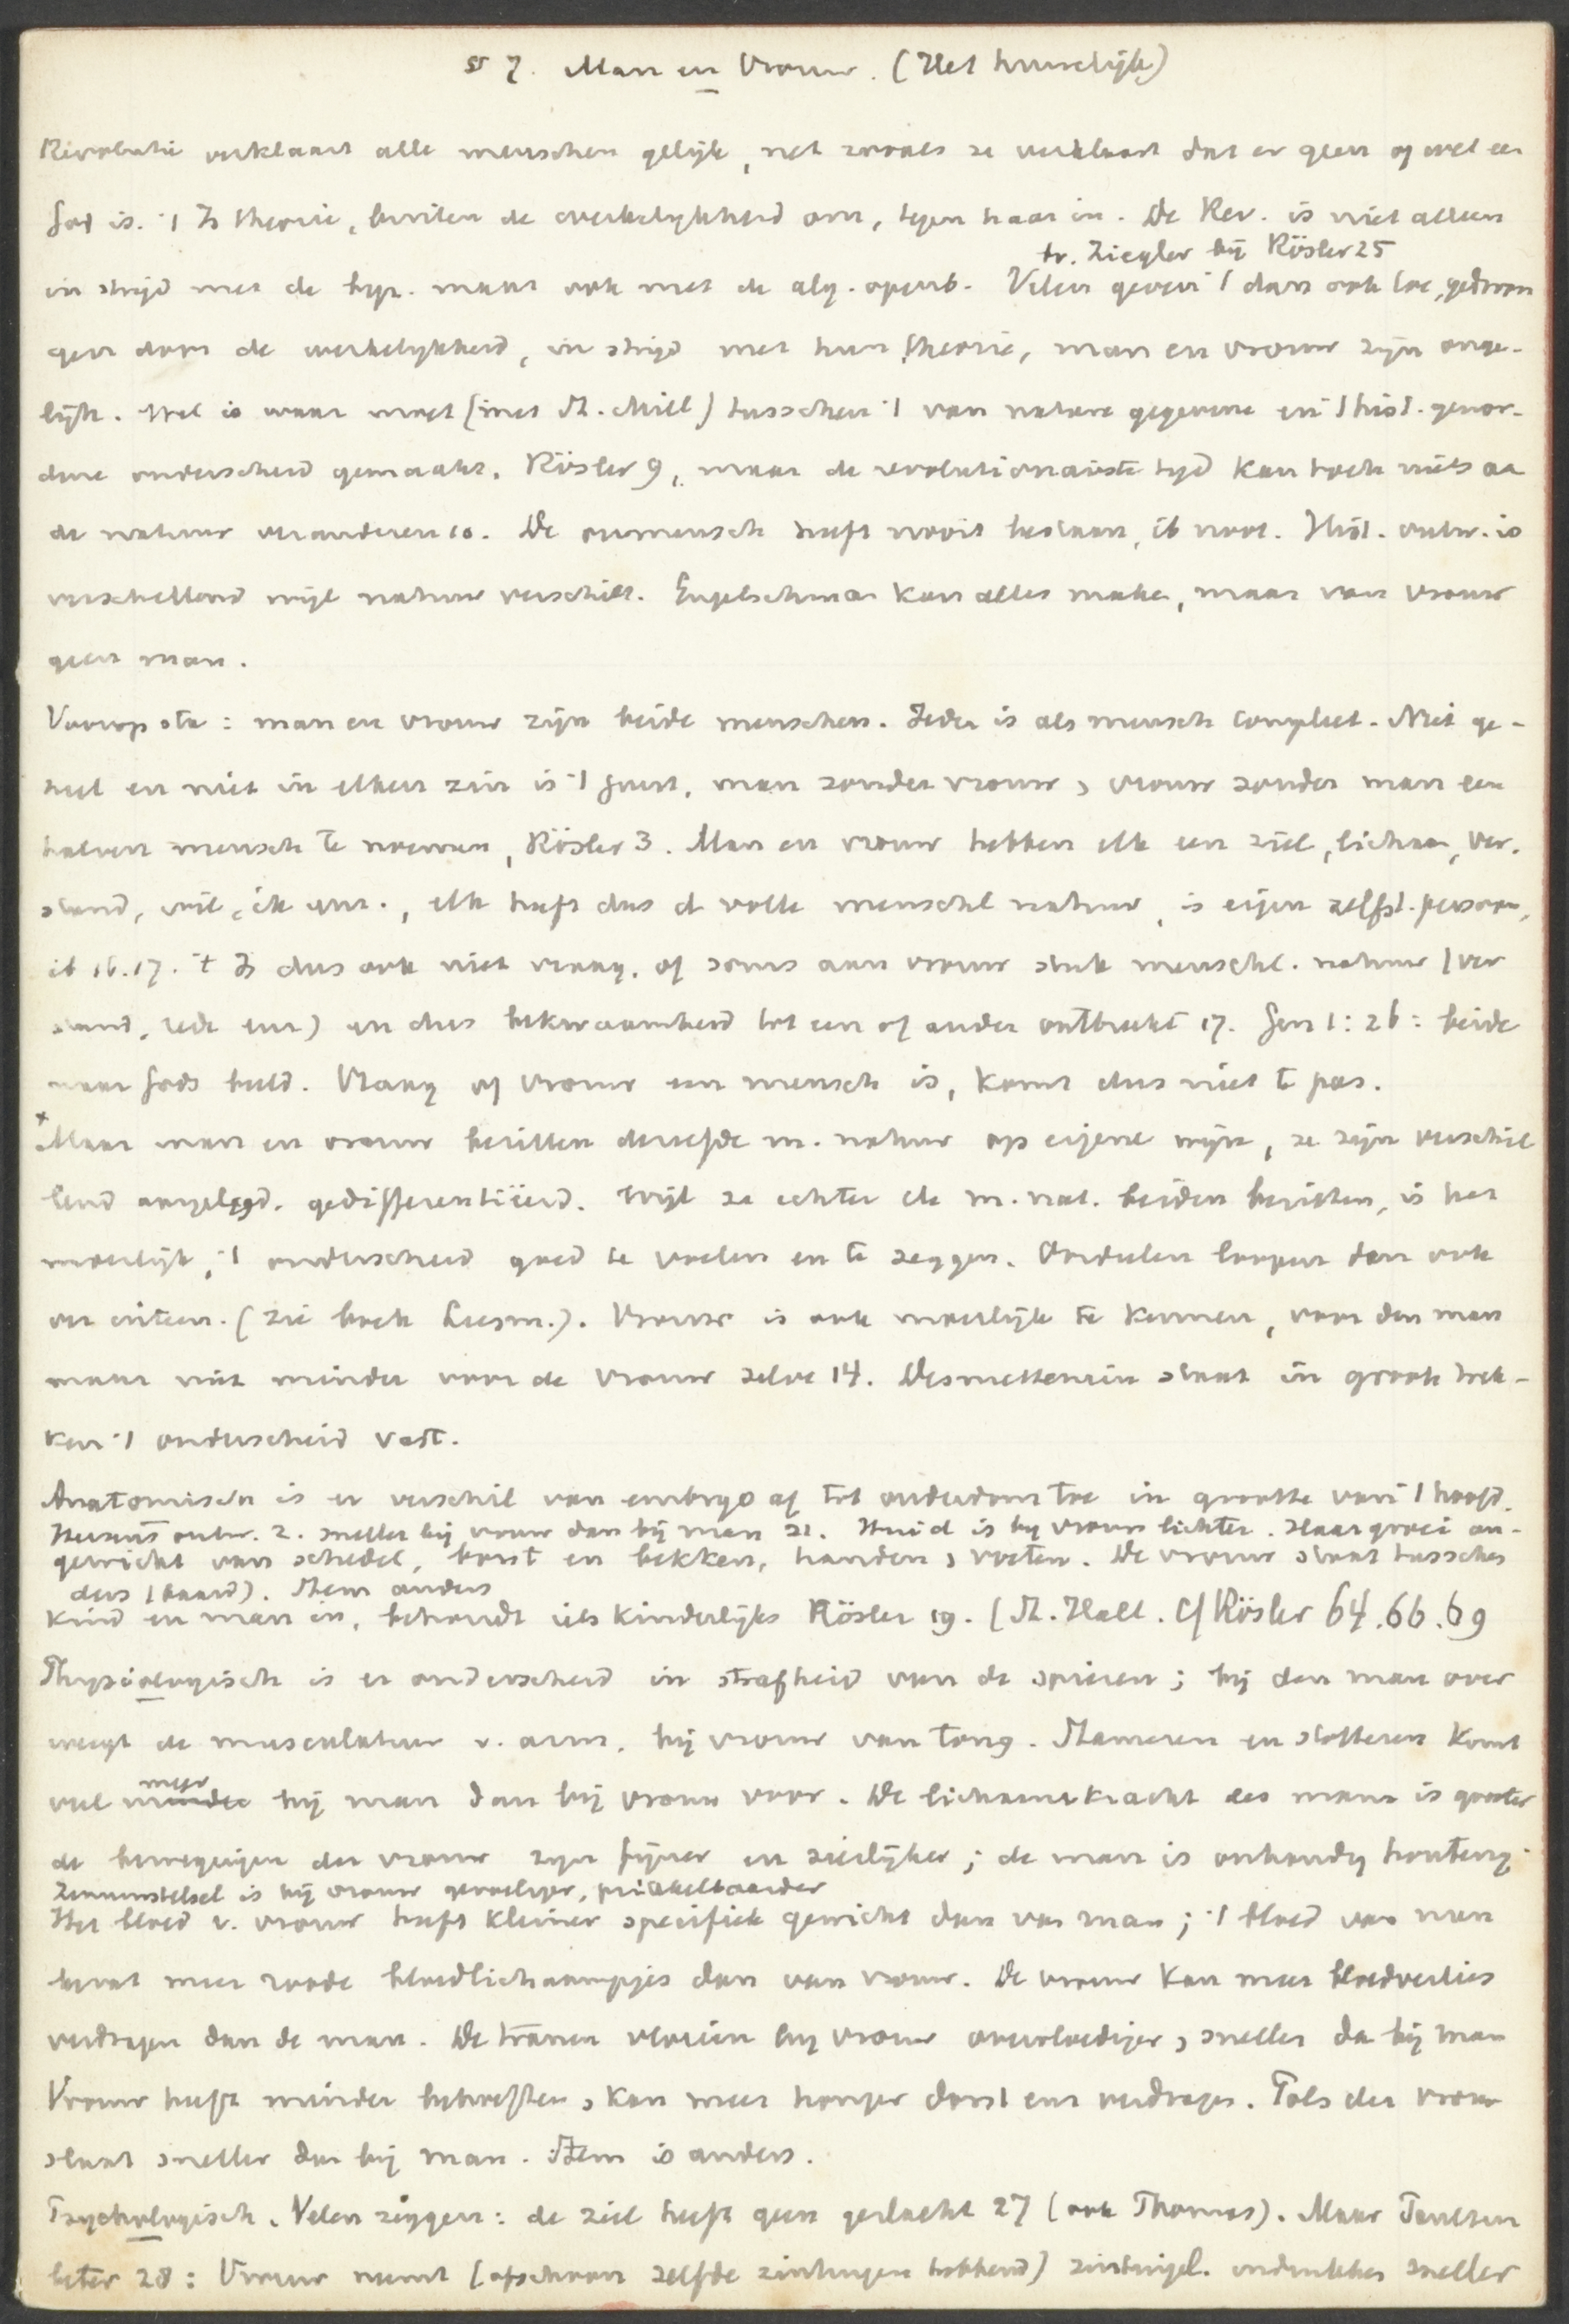 § 7. Man en Vrouw. (Het huwelijk)
Revolutie verklaart alle menschen gelijk, net zooals ze verklaart dat er geen of wel een
God is. 't Is theorie, buiten de werkelijkheid om, tegen haar in. De Rev. is niet alleen
tr. Ziegler bij Rösler 25
in strijd met de byz. maar ook met de alg. openb. Velen geven 't dan ook toe, gedwon
gen door de werkelijkheid, in strijd met hun theorie, man en vrouw zijn onge-
lijk. Wel is waar moet (met St. Mill) tusschen 't van nature gegevene en 't hist. gewor-
dene onderscheid gemaakt. Rösler 9, maar de revolutionairste tijd kan toch niets aa
de natuur veranderen 10. De oermensch heeft nooit bestaan, ib noot. Hist. ontw. is
verschillend wijl natuur verschilt. Engelschman kan alles maken, maar van vrouw
geen man.
Voorop sta: man en vrouw zijn beide menschen. Ieder is als mensch compleet. Niet ge-
heel en niet in elken zin is 't juist, man zonder vrouw, vrouw zonder man een
halven mensch te noemen, Rösler 3. Man en vrouw hebben elk een ziel, lichaam, ver.
stand, wil, ik enz., elk heeft dus d volle menschel natuur, is eigen zelfst. persoon,
ib 16.17. 't Is dus ook niet vraag, of soms aan vrouw stuk menschl. natuur (ver
stand, rede enz) en dus bekwaamheid tot een of ander ontbreekt 17. Gen 1:26: beide
naar Gods beeld. Vraag of vrouw een mensch is, komt dus niet te pas.
x Maar man en vrouw bezitten dezelfde m. natuur op eigene wijze, ze zijn verschil
lend aangelegd, gedifferentiëerd. Wijl ze echter de m. nat. beiden bezitten, is het
moeilijk, 't onderscheid goed te voelen en te zeggen. Oordelen loopen dan ook
ver uiteen. (zie boek Liesm.). Vrouw is ook moeilijk te kennen, voor den man
maar niet minder voor de vrouw zelve 14. Desniettemin staat in groote trek-
ken 't onderscheid vast.
Anatomisch is er verschil van embryo af tot ouderdom toe in grootte van 't hoofd,
Hersens ontw. z. sneller bij vrouw dan bij man 21. Huid is bij vrouw lichter. Haargroei an-
gewicht van schedel, borst en bekken, handen, voeten. De vrouw staat tusschen
ders (baard). Stem anders
kind en man in, behoudt iets kinderlijks Rösler 19. (St. Hall. Cf Rösler 64.66.69
Physiologisch is er onderscheid in strafheid van de spieren; bij den man over
weegt de musculatuur v. arm, bij vrouw van tong. Stameren en stotteren komt
veel meer bij man dan bij vrouw voor. De lichaamskracht des mans is grooter
de bewegingen der vrouw zijn fijner en sierlijker; de man is onhandig houterig.
Zenuwstelsel is bij vrouw gevoeliger, prikkelbaarder
Het bloed v. vrouw heeft kleiner specifiek gewicht dan van man; 't bloed van man
bevat meer roode bloedlichaampjes dan van vrouw. De vrouw kan meer bloedverlies
verdragen dan de man. De tranen vloeien bij vrouw overvloediger, sneller dan bij man
Vrouw heeft minder behoeften, kan meer honger dorst enz verdragen. Pols der vrouw
slaat sneller dan bij man. Stem is anders.
Psychologisch. Velen zeggen: de ziel heeft geen geslacht 27 (ook Thomas). Maar Paulsen
beter 28: Vrouw neemt (ofschoon zelfde zintuigen hebbend) zintuigel. indrukken sneller